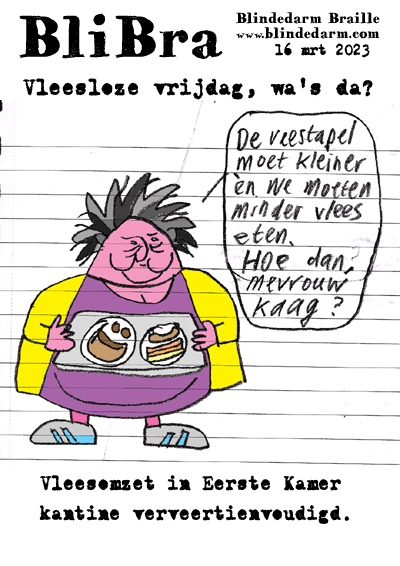 BliBra
Blindedarm Braille
www.blindedarm.com
16 mrt 2023
Vleesloze vrijdag, wa's da?
De veestapel
moet kleiner
èn we moeten
minder vlees
eten.
Hoe dan,
mevrouw
Kaag?
Vleesomzet in Eerste Kamer
kantine ververtienvoudigd.